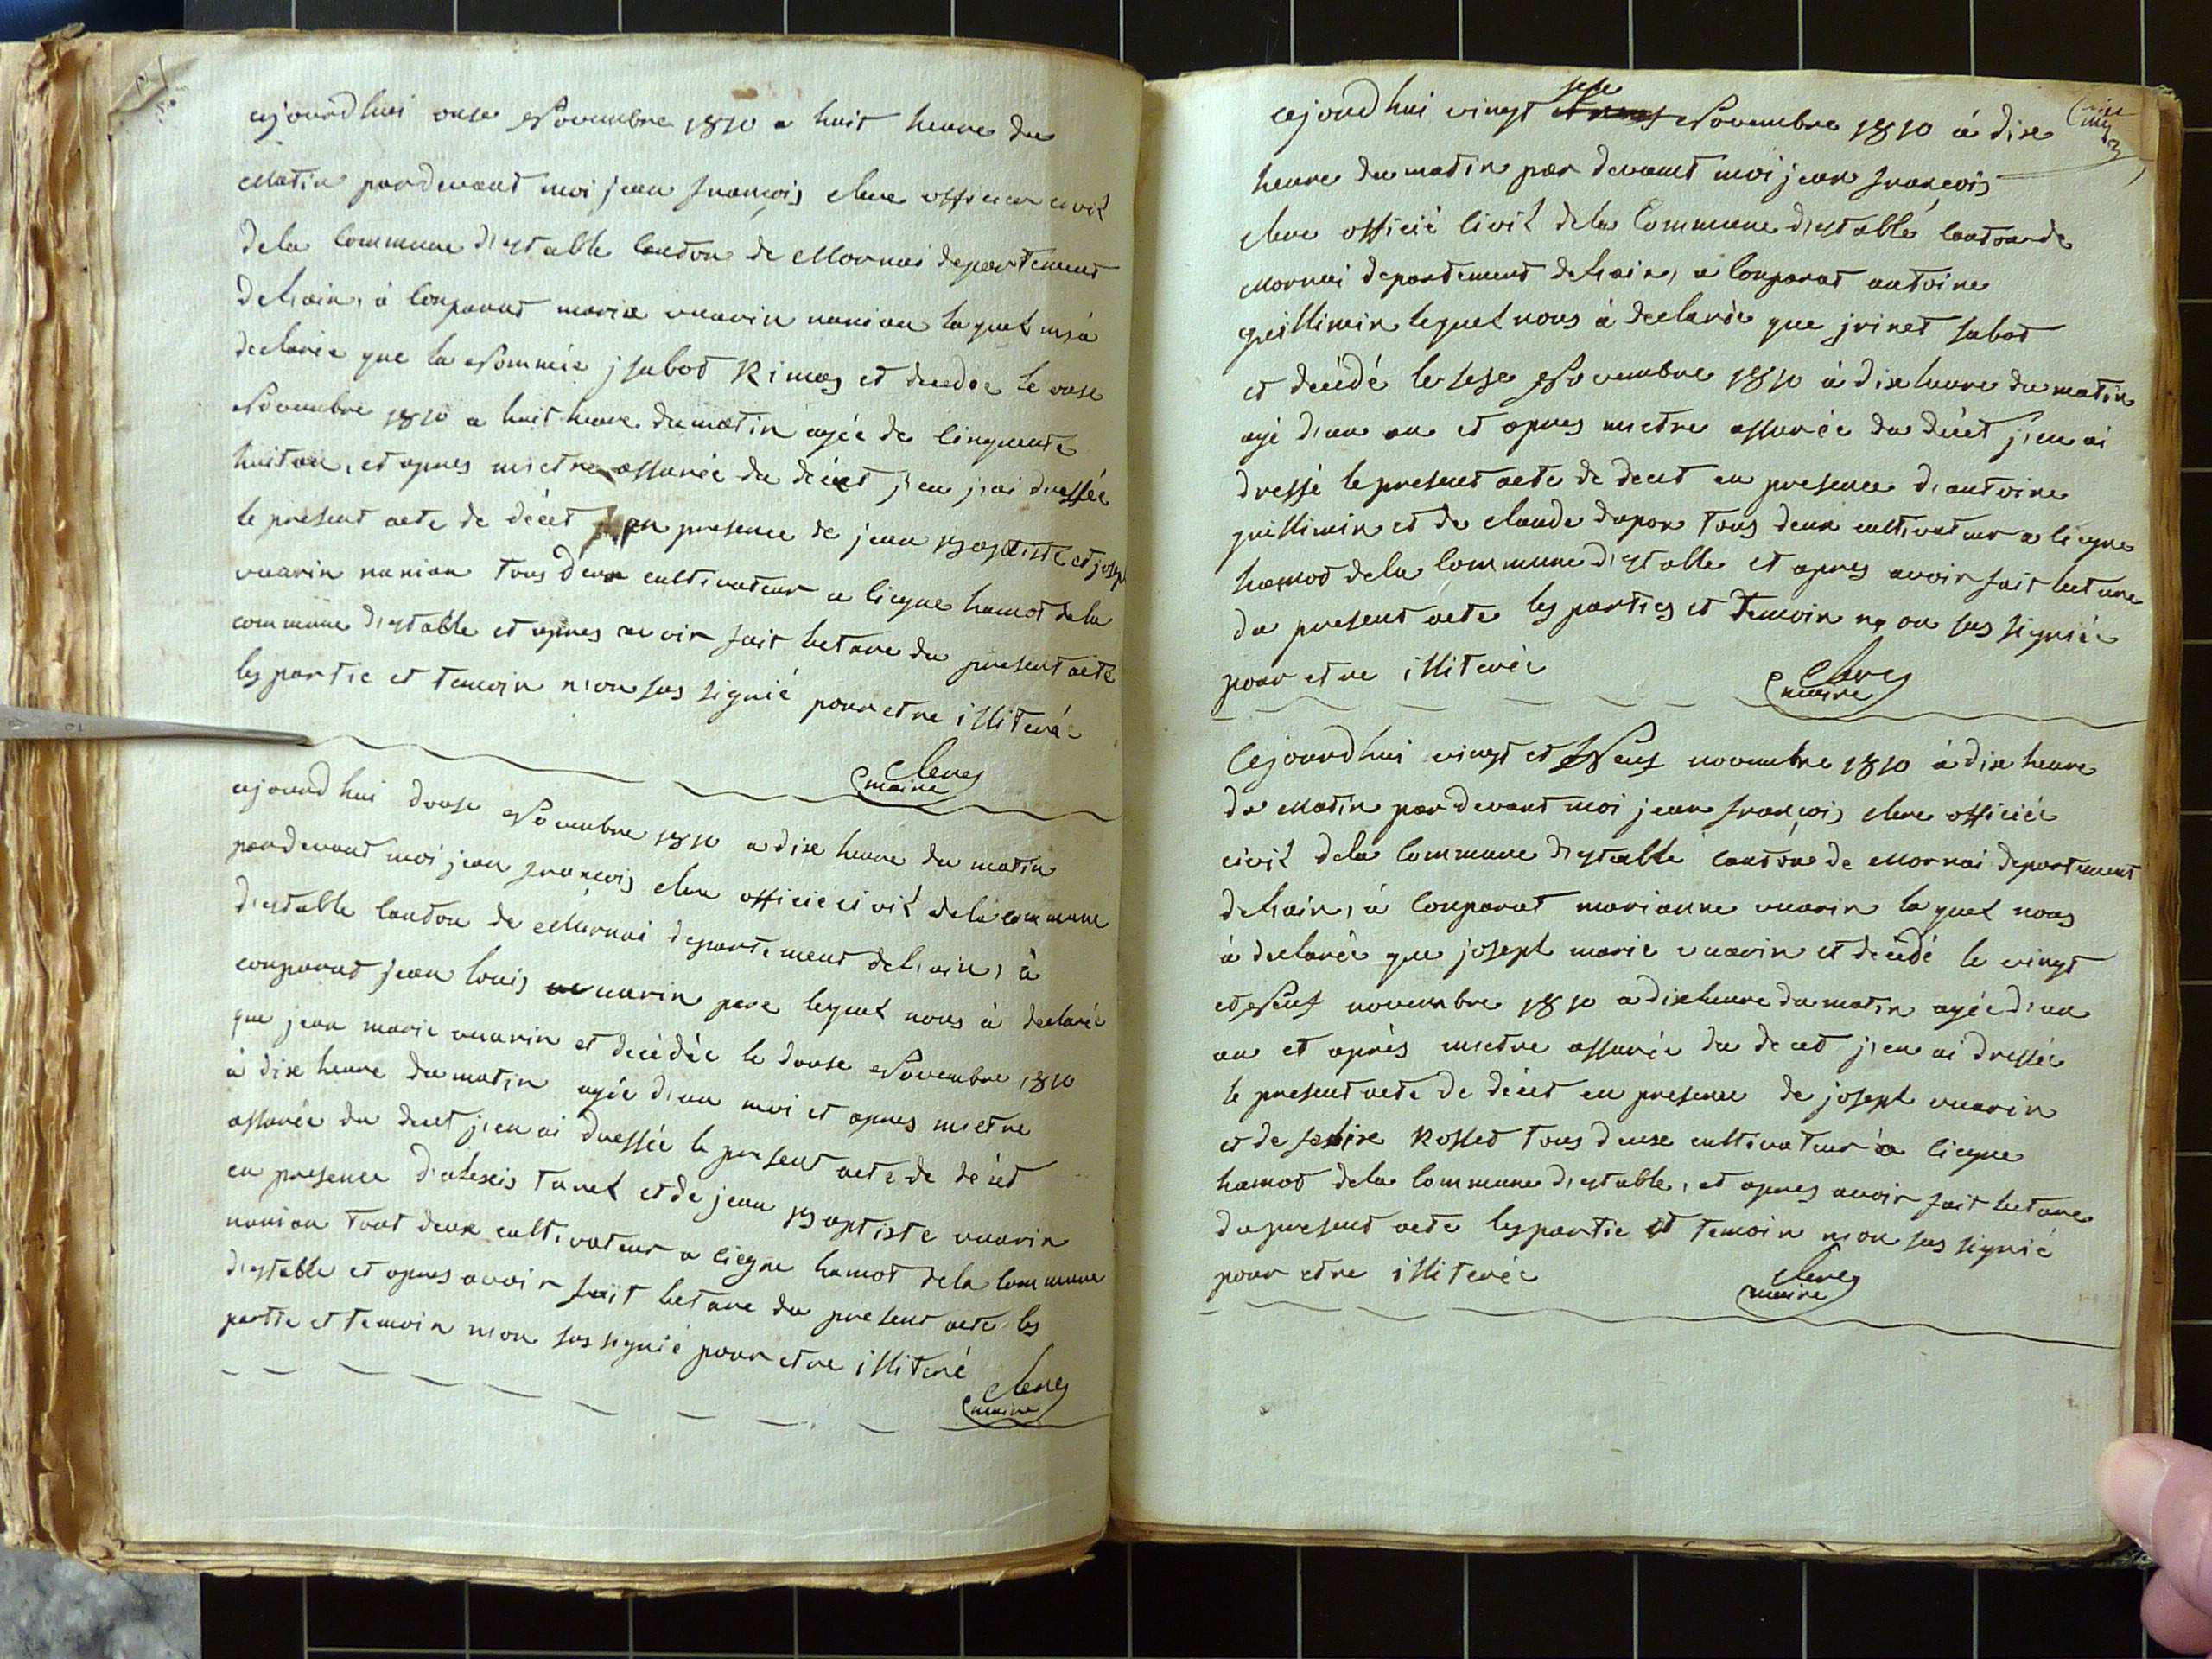 cejourd hui onse Novembre 1810 a huit heure du
Matin pardevant moi jean françois clerc officier civil
dela Commune d'estable Canton de Mornai departement
de l'ain, à Conparut marie vuarin nanion laquel m'a
declarée que la Nommée jsabot Rimas et decedée le onse
Novembre 1810 a huit heure du matin agée de Cinquente
huit an, et apres mettre assurée du décet j'en j'ai dressée
le present acte de décet en presence de jean Baptiste et josep
vuarin nanion tous deux cultivateur a Ciegne hamot dela
commune d'estable et apres avoir fait lecture du present acte
les partie et temoin n'on sus signié pour etre illiterée
Clerc
maire
cejourd hui douse Novembre 1810 a dixe heure du matin
pardevant moi jean françois clerc officié civil dela commune
d'estable Canton de Mornai departement de l'ain, à
conparut jean louis vuarin pere lequel nous à declarée
que jean marie vuarin et decédée le douse Novembre 1810
à dixe heure du matin agée d'un moi et apres mettre
assurée du decet j'en ai dressée le present acte de décet
en presence d'alexis turel et de jean Baptiste vuarin
nanion tout deux cultivateur a Ciegne hamot dela Commune
d'estable et apres avoir fait lecture du present acte les
partie et temoin n'on sus signié pour etre illiteré
Clerc
maire
cejourd hui vingt sese Novembre 1810 à dixe
heure du matin par devant moi jean françois
clerc officié Civil dela Commune d'estable Canton de
Mornai departement de l'ain, a Conparut antoine
guillimin lequel nous à declarée que jsabot
et décédé le sese Novembre 1810 à dixe heure du matin
agé d'un an et apres mettre assurée du décet j'en ai
dressé le present acte de decet en presence d'antoine
guillimin et de claude dupon tous deux cultivateur a Ciegne
hamot dela Commune d'estable et apres avoir fait lecture
du present acte les parties et temoin n'on sus signiée
pour etre illiterée
Clerc
maire
Cejourd hui vingt et Neuf novembre 1810 à dixe heure
du Matin pardevant moi jean françois clerc officiée
civil dela Commune d'estable canton de Mornai departement
de l'ain, à Conparut marianne vuarin laquel nous
à declarée que josept marie vuarin et décédé le vingt
et Neuf novembre 1810 a dixe heure du matin agée d'un
an et après mettre assurée du decet j'en ai dressée
le present acte de décet en presence de josept vuarin
et de Rosset tous deuse cultivateur a Ciegne
hamot dela Commune d'estable, et apres avoir fait lecture
du present acte les partie et temoin n'on sus signié
pour etre illiterée
Clerc
maire